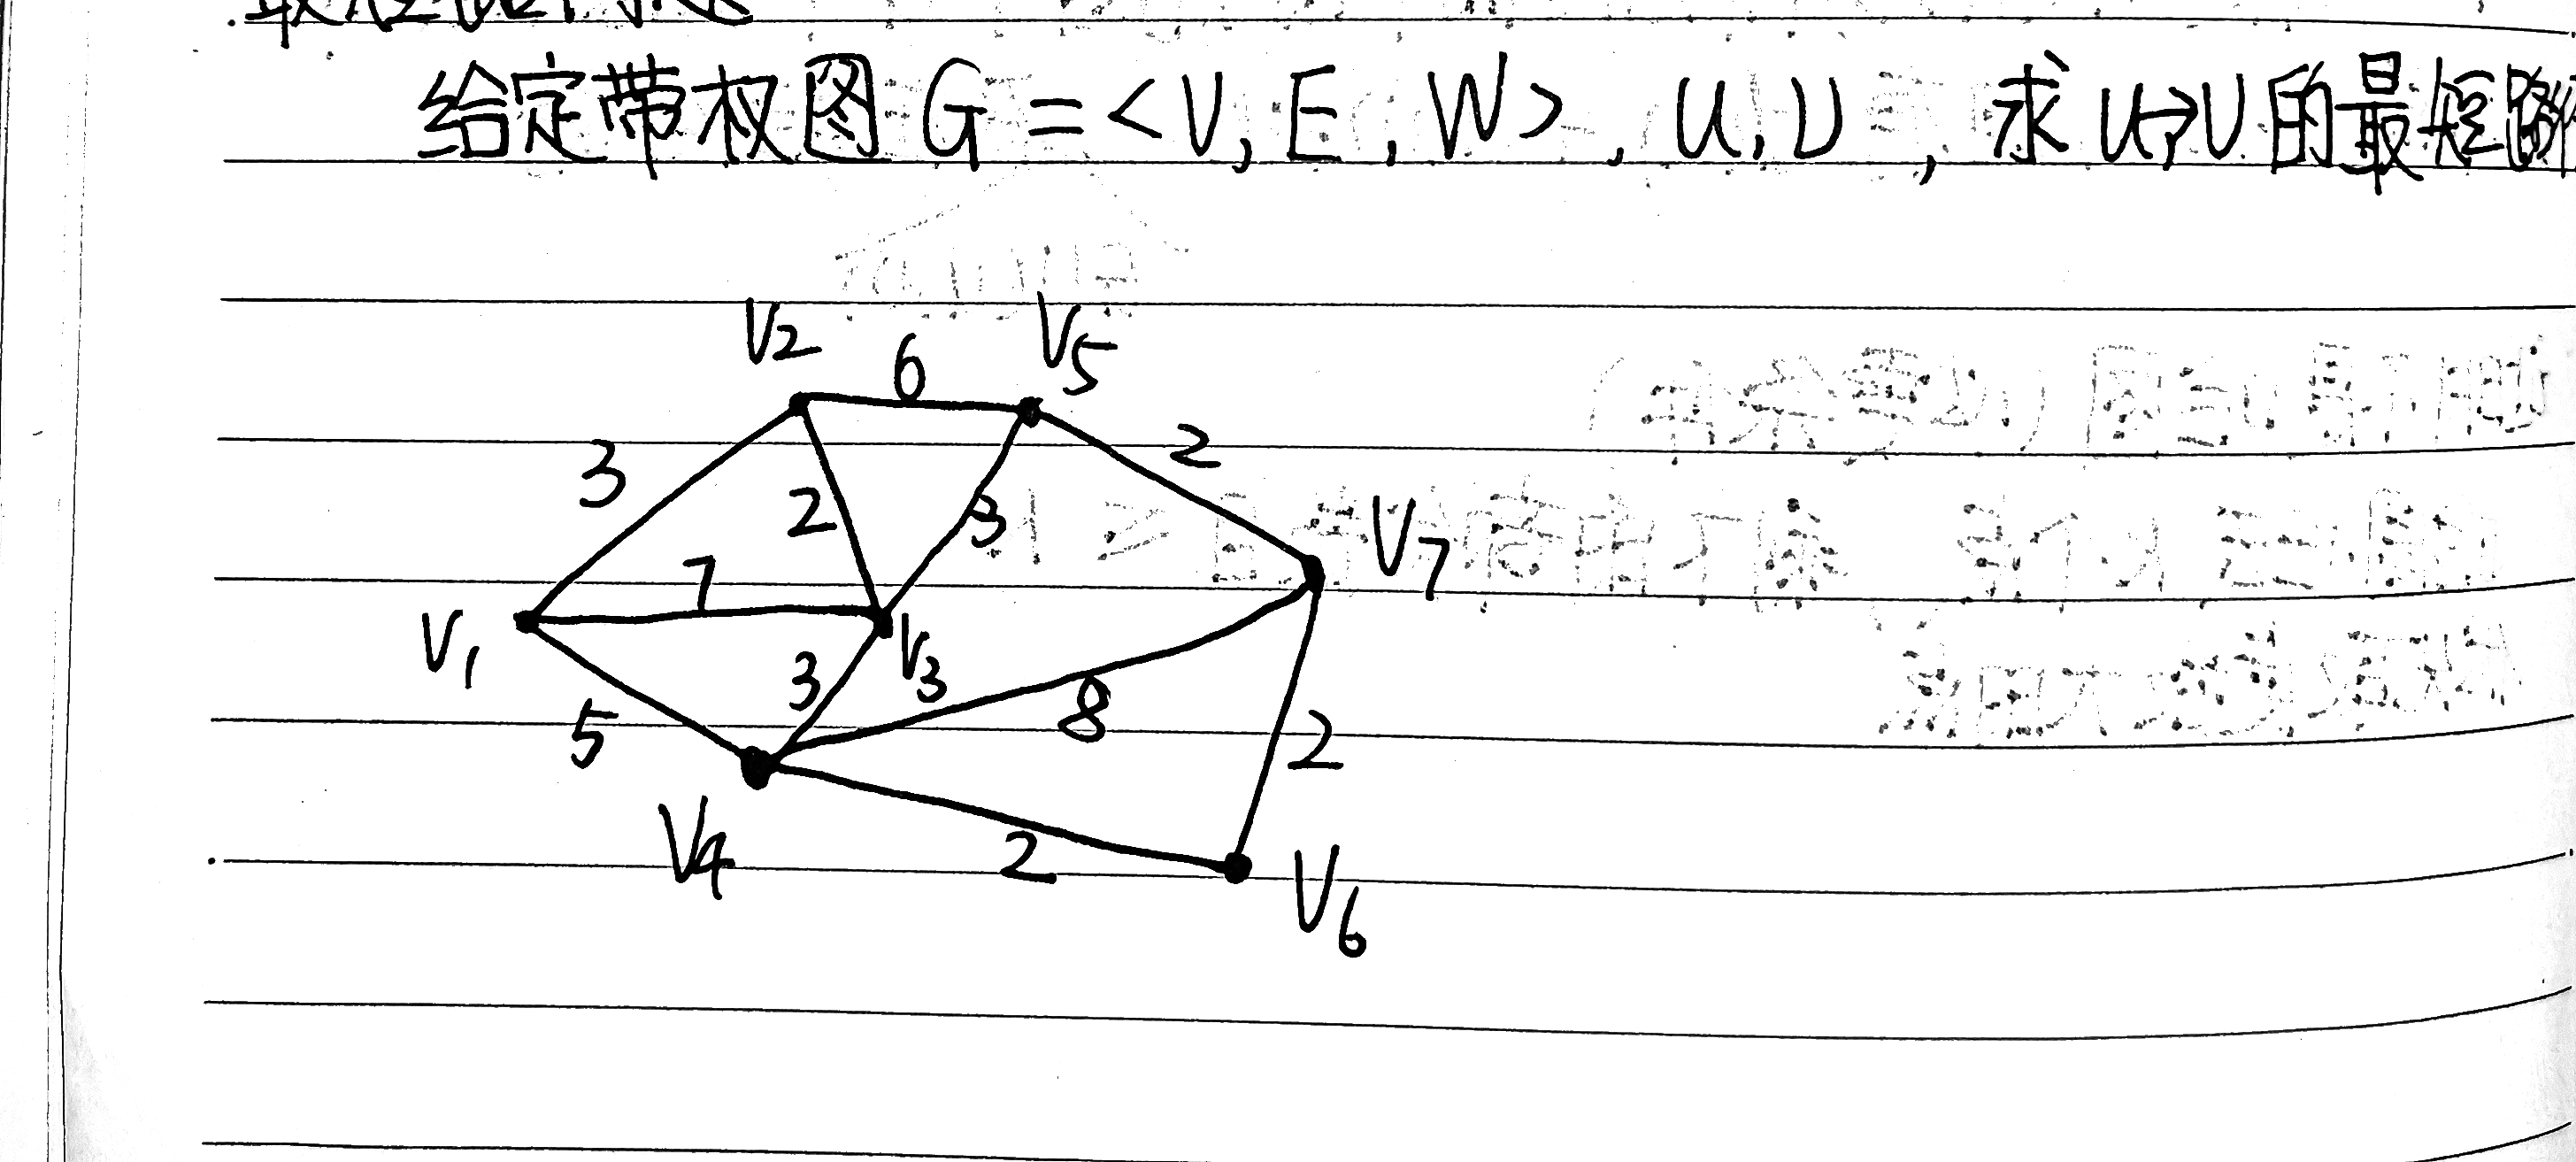 给定带权图 G = <V, E, W>, u, v, 求 u→v 的最短路
V2 6 V5
3 2 3 2
V7
7
V1 3 V3
5 8 2
V4 2
V6